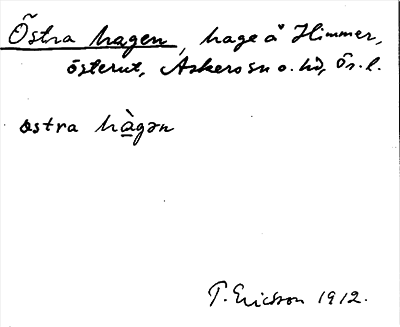 Östra hagen, hage å Himmer,
österut, Askers sn o. hd, Ör. l.
östra hàgən
T. Ericsson 1912.